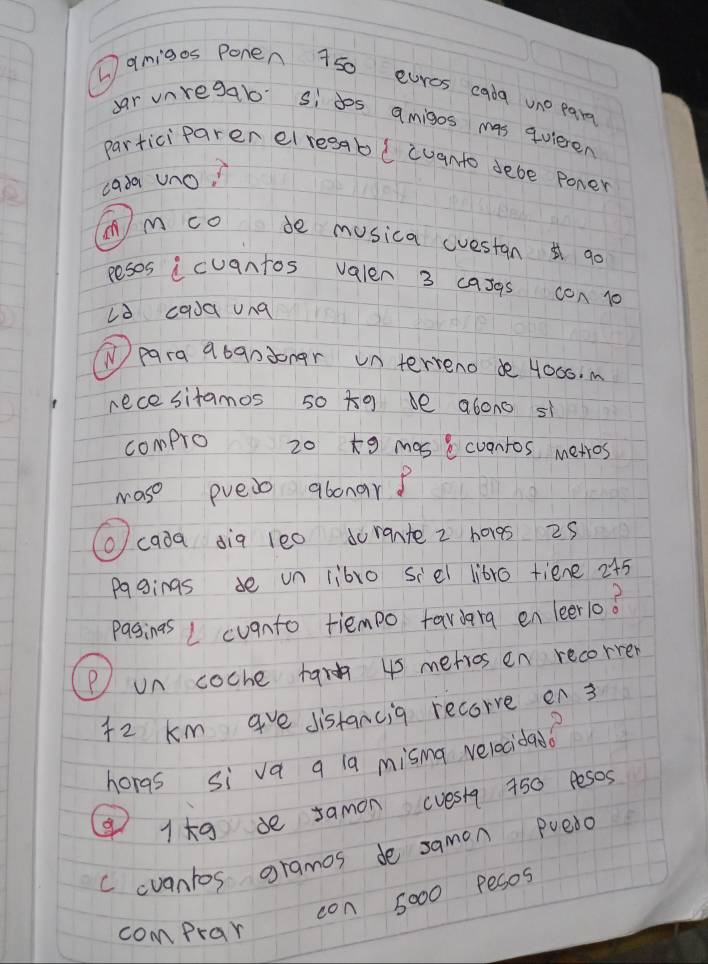 L) amigos ponen 750 euros cada uno para
dar un regalo. si dos amigos mas quieren
participaren el regalo ¿ cuanto debe poner
cada uno?
m) m co de musica cuestan $ 90
pesos ¿cuantos valen 3 cajas con 10
cd cada una
N) para abandonar un terreno de 4000.m
necesitamos 50 kg de abono si
compro 20 kg mas ¿ cuantos metros
maso puedo abonar?
O) cada dia leo durante 2 horas 25
paginas de un libro si el libro tiene 275
paginas ¿ cuanto tiempo tardara en leerlo?
P) un coche tarda 45 metros en recorrer
72 km que distancia recorre en 3
horas si va a la misma velocidad?
q 1 kg de jamon cuesta 750 pesos
¿ cuantos gramos de jamon puedo
comprar con 5000 pesos